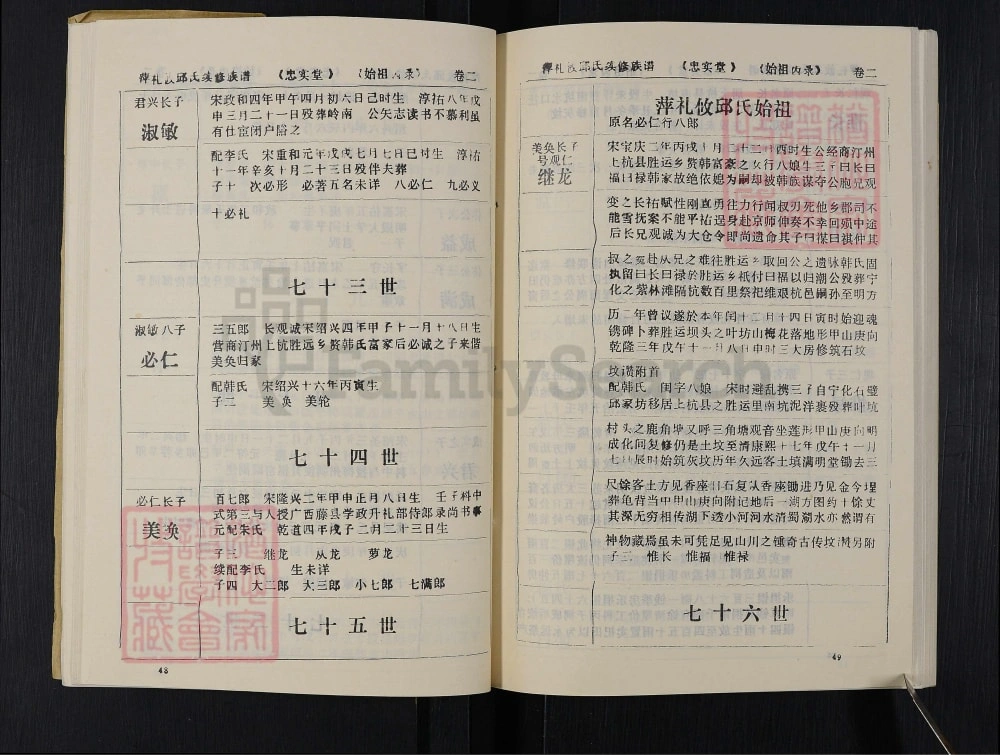 萍礼攸邱氏续修族谱 《忠实堂》 (始祖内录) 卷二
君兴长子
淑敏
宋政和四年甲午四月初六日己时生 淳祐八年戊
申三月二十一日殁葬岭南 公矢志读书不慕利虽
有仕宦闭户辭之
配李氏 宋重和元年戊戌七月七日已时生 淳祐
十一年辛亥十月二十三日殁伴夫葬
子十 次必形 必著五名未详 八必仁 九必义
十必礼
七十三世
淑敏八子
必仁
三五郎 长观诚宋绍兴四年甲子十一月十八日生
营商汀州上杭胜远乡赘韩氏富家后必诚之子来偕
美奂归家
配韩氏 宋绍兴十六年丙寅生
子二 美奂 美轮
七十四世
必仁长子
美奂
百七郎 宋隆兴二年甲申正月八日生 壬子科中
式第三与人授广西藤县学政升礼部侍郎录尚书事
元配朱氏 乾道四年戌子二月二十三日生
子三 继龙 从龙 萝龙
续配李氏 生未详
子四 大二郎 大三郎 小七郎 七满郎
七十五世
48
萍礼攸邱氏续修族谱 《忠实堂》 (始祖内录) 卷二
萍礼攸邱氏始祖
原名必仁行八郎
美奂长子
号观仁
继龙
宋宝庆二年丙戌十月二十二日酉时生公经商汀州
上杭县胜运乡赘韩富豪之女行八娘生三子曰长曰
福曰禄韩家故绝依媳为嗣却被韩族谋夺公胞兄观
变之长祐赋性刚直勇往力行闻叔刃死他乡郡司不
能雪抚案不能平祐逞身赴京师伸奏不幸回殒中途
后长兄观诚为大仓令即尚遗命其子曰谋曰祺仲其
叔之冤赴从兄之难往胜运乡取回公之遗脉韩氏固
执留曰长曰禄於胜运乡祇付曰福以归潮公殁葬宁
化之紫林滩隔杭数百里祭祀维艰杭邑嗣孙至明方
历二年曾议遂於本年闰十二月十四日寅时始迎魂
镌碑卜葬胜运坝头之叶坊山梅花落地形甲山庚向
乾隆三年戊午十一月八日申时三大房修筑石坟
坟谱附首
配韩氏 闺字八娘 宋时避乱携三子自宁化石璧
邱家坊移居上杭县之胜运里南坑泥洋裹殁葬叶坑
村头之鹿角坤又呼三角塘观音坐莲形甲山庚向明
成化间复修仍是土坟至清康熙十七年戊午十一月
七日辰时始筑灰坟历年久远客土填满明堂锄去三
尺馀客土方见香座旧石复从香座锄进乃见金今埕
葬龟背当中甲山庚向附记地后一湖方图约十馀丈
其深无穷相传湖下透小河河水清蜀湖水亦然谓有
神物藏焉虽未可凭足见山川之锺奇古传坟谱另附
子三 惟长 惟福 惟禄
七十六世
49